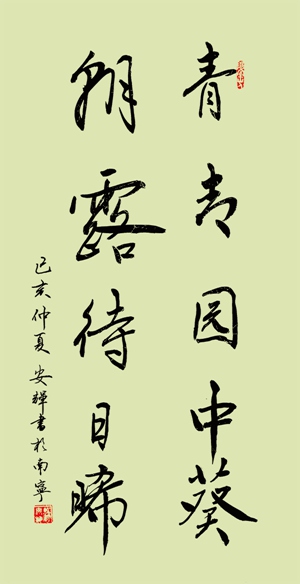 青青园中葵
朝露待日晞
己亥仲夏安禅书于南宁